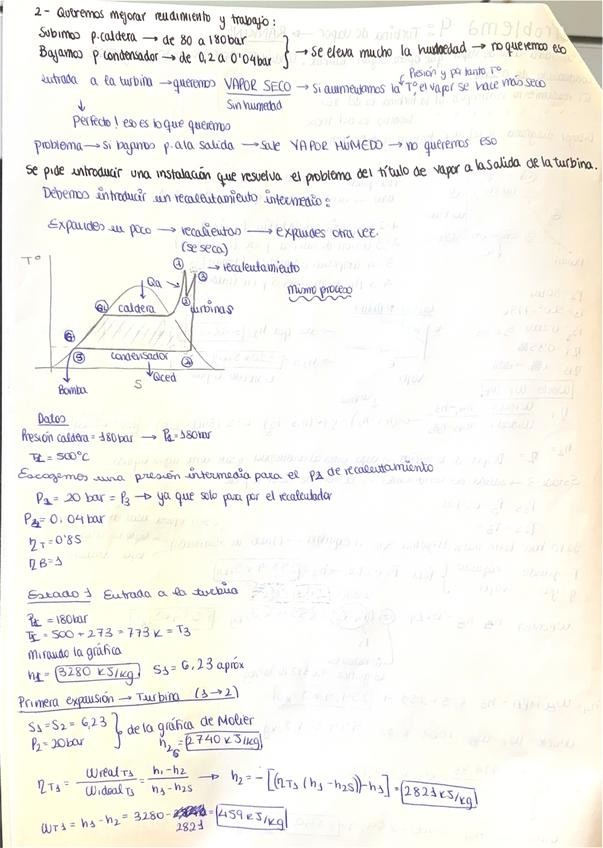 2 - Queremos mejorar rendimiento y trabajo:
Subimos p.caldera → de 80 a 180 bar
Bajamos p condensador → de 0,2 a 0'04 bar } → se eleva mucho la humedad → no queremos eso
Entrada a la turbina → queremos VAPOR SECO → Si aumentamos la Tº, el vapor se hace más seco
Presión y por tanto Tº
Sin humedad
↓
Perfecto! eso es lo que queremos
problema → si bajamos p.a la salida → sale VAPOR HÚMEDO → no queremos eso
Se pide introducir una instalación que resuelva el problema del título de vapor a la salida de la turbina.
Debemos introducir un recalentamiento intermedio:
Expandes un poco → recalientas → expandes otra vez.
(se seca)
Tº
① → recalentamiento
③
Qa
②
turbinas
mismo proceso
caldera
⑤
condensador
④
Qced
Bomba
S
Datos
Presión caldera = 180 bar → P1 = 180 bar
T1 = 500°C
Escogemos una presión intermedia para el P2 de recalentamiento
P2 = 20 bar = P3 → ya que solo pasa por el recalentador
P4 = 0,04 bar
ηT = 0'85
ηB = 1
Estado 1 Entrada a la turbina
P1 = 180 bar
T1 = 500 + 273 = 773 K = T3
Mirando la gráfica
h1 = 3280 KJ/kg S1 = 6,23 aprox
Primera expansión → Turbina (1→2)
S1 = S2 = 6,23
P2 = 20 bar } de la gráfica de Mollier
h2s = 2740 KJ/kg
ηT1 = Wreal T1 / Wideal T1 = h1 - h2 / h1 - h2s → h2 = - [(ηT1 (h1 - h2s)) - h1] = 2821 KJ/kg
WT1 = h1 - h2 = 3280 - 2821 = 459 KJ/kg